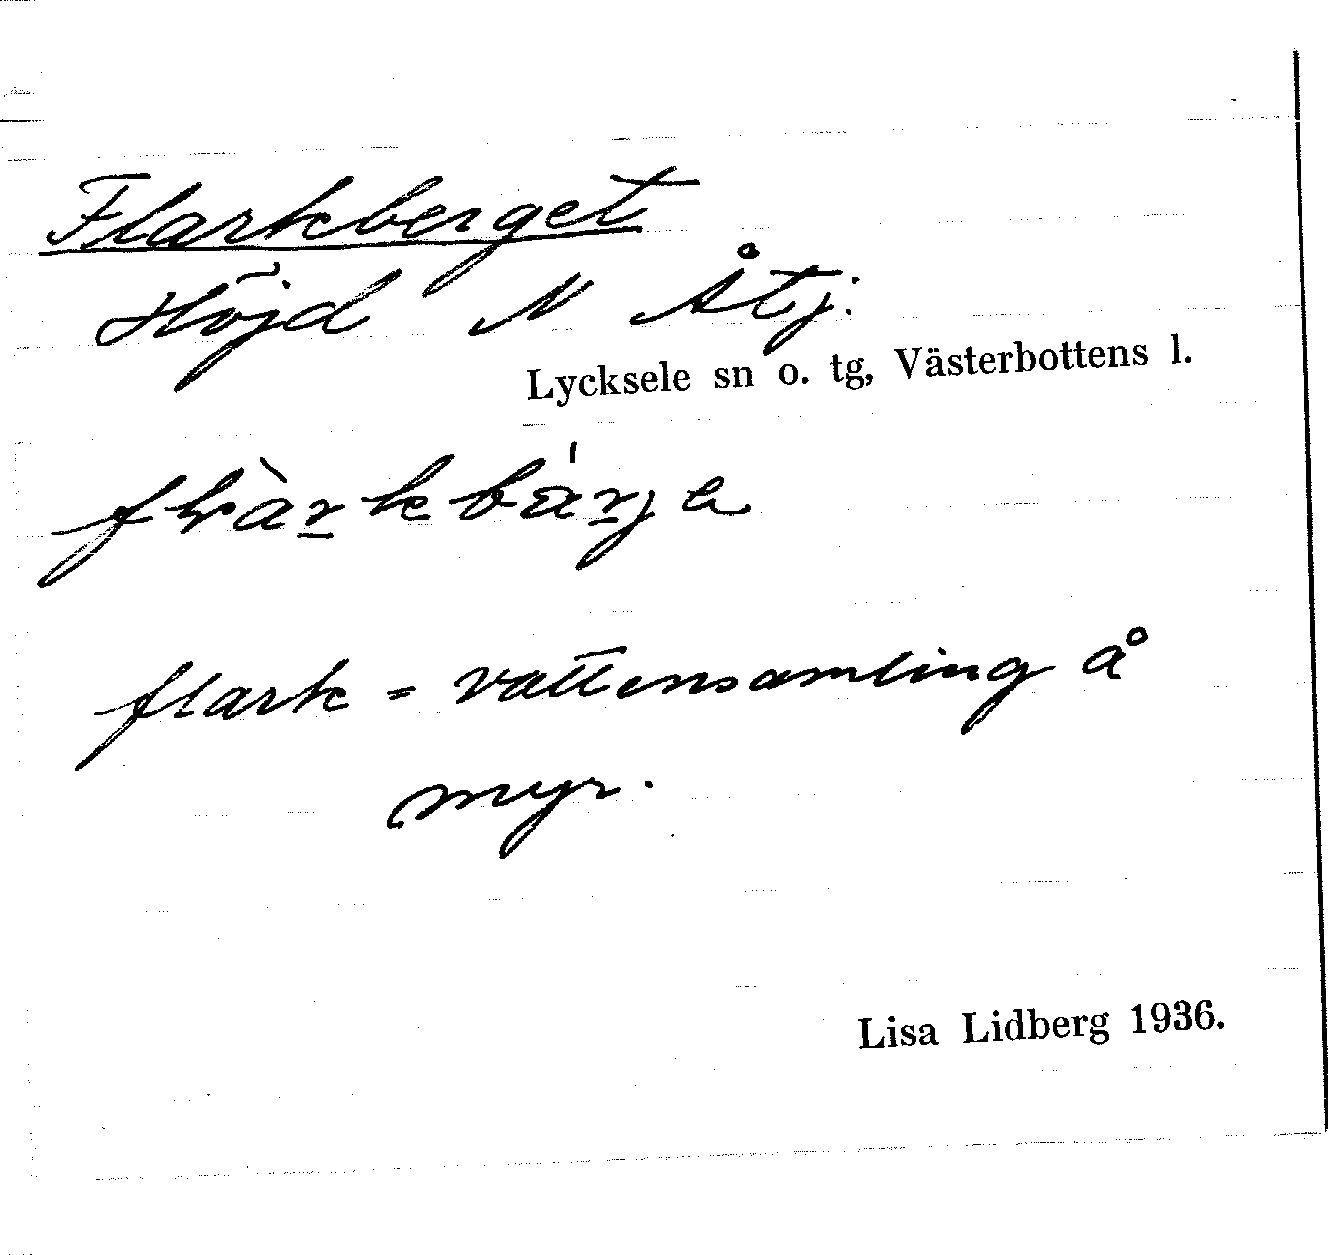 Flarkberget
Höjd N Åtj.
Lycksele sn o. tg, Västerbottens l.
flark = vattensamling å
myr.
Lisa Lidberg 1936.